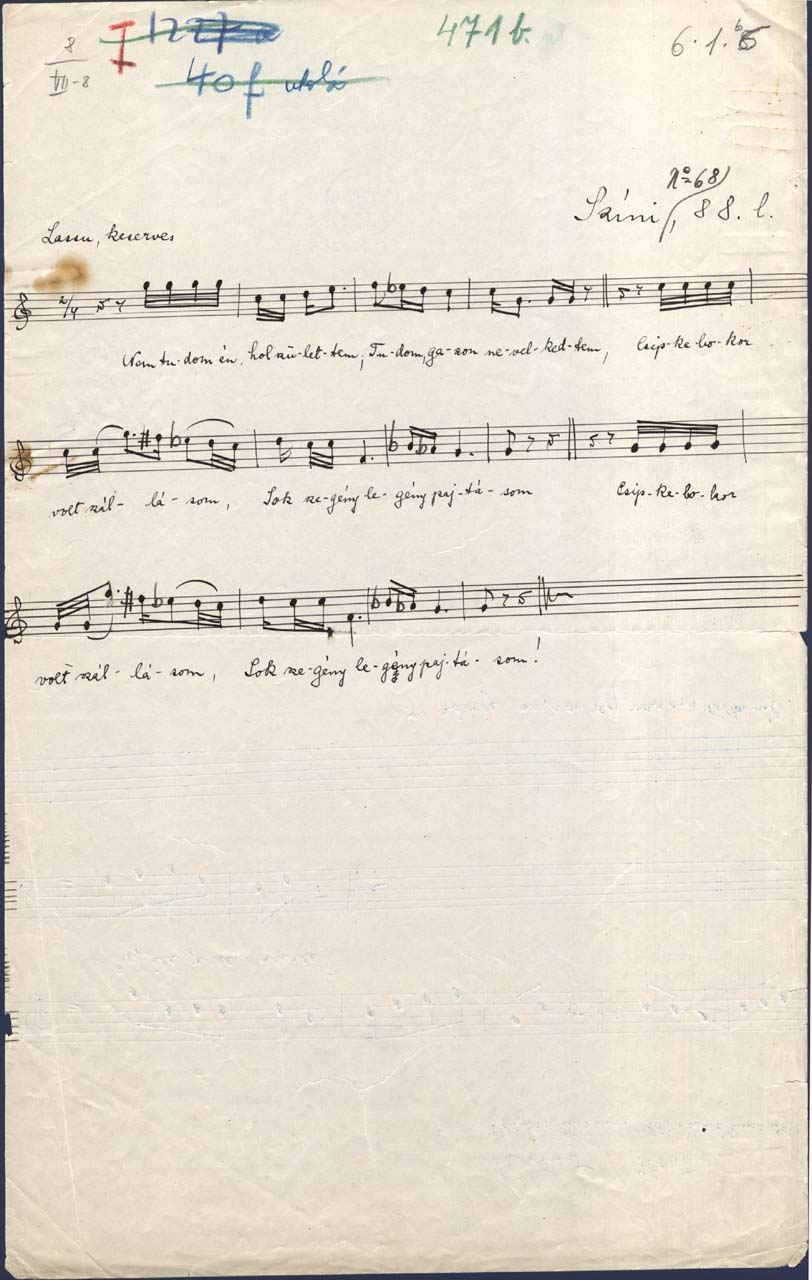 8
VII-8
I
1227
40f utolá
471 b.
6.1.6
Nº 68)
Színi, 88. l.
Lassu, keserves
2/4
Nem tu-dom én, hol szü-let-tem, Tu-dom, ga-zon ne-vel-ked-tem, Csip-ke-bo-kor
volt szál-lá-som, Sok sze-gény le-gény paj-tá-som Csip-ke-bo-kor
volt szál-lá-som, Sok sze-gény le-gény paj-tá-som!